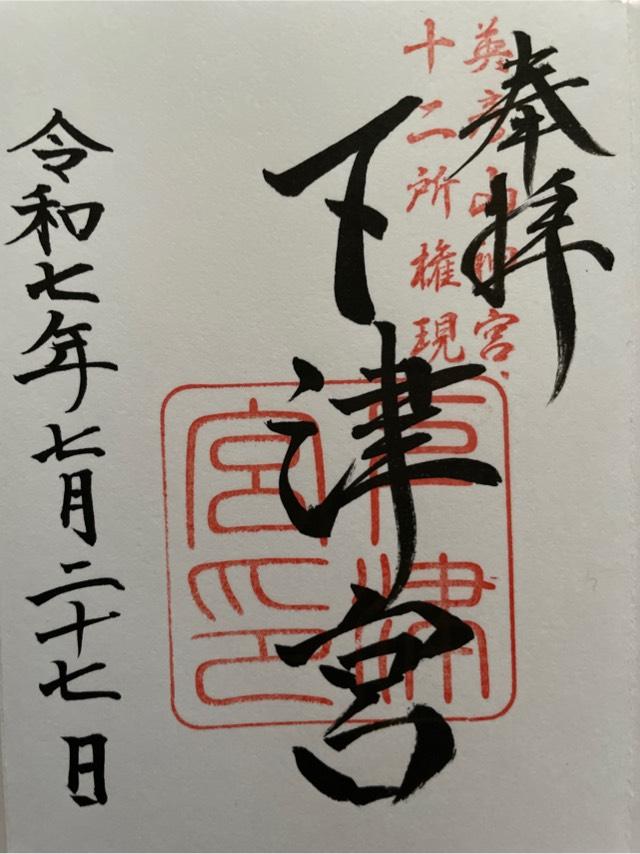 奉拝
英彦山四宮、
十二所権現
下津宮
下津
宮印
令和七年七月二十七日